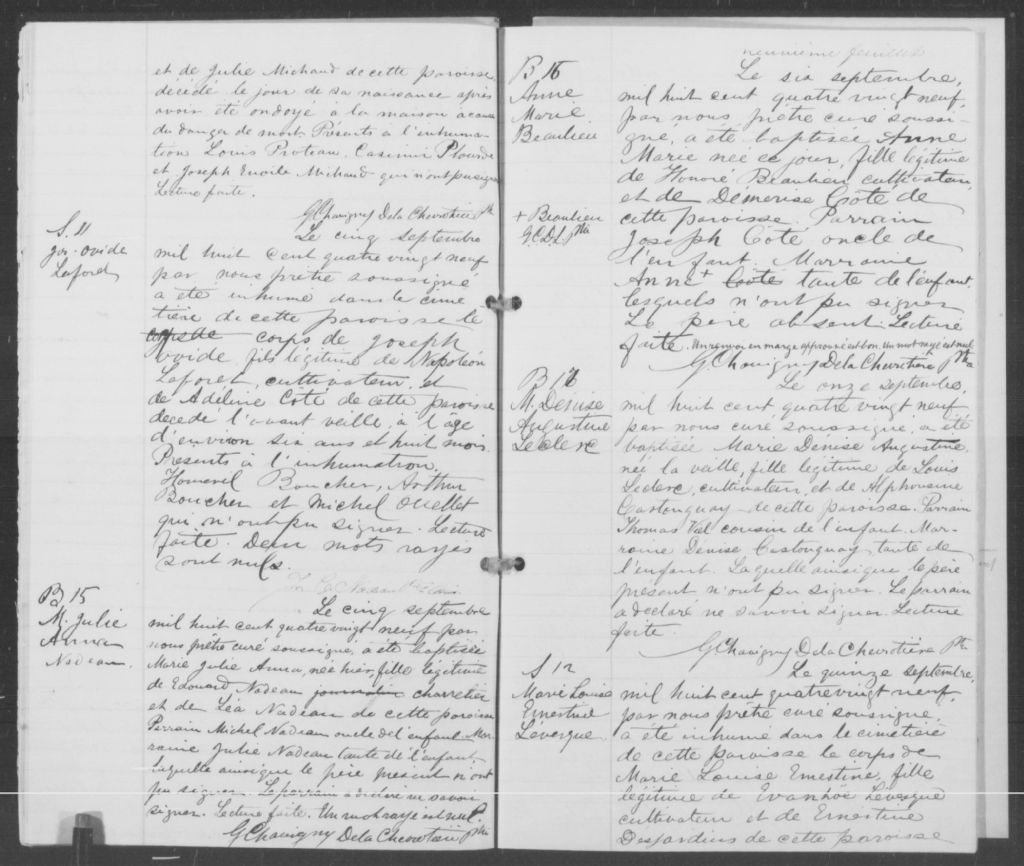 et de Julie Michaud de cette paroisse
décédé le jour de sa naissance après
avoir été ondoyé à la maison à cause
du danger de mort. Présents à l'inhuma-
tion Louis Proteau, Casimir Plourde
et Joseph Michaud qui n'ont pu signer
Lecture faite.
G Chavigny De la Chevrotière Ptre
S. 11
Jos. Ovide
Laforet
Le cinq septembre
mil huit cent quatre vingt neuf
par nous prêtre soussigné
a été inhumé dans le cime
tière de cette paroisse le
corps de Joseph
Ovide, fils légitime de Napoléon
Laforet, cultivateur, et
de Adéline Côté de cette paroisse
décédé l'avant veille, à l'âge
d'environ six ans et huit mois.
Présents à l'inhumation,
Homerel Boucher, Arthur
Boucher et Michel Ouellet
qui n'ont pu signer. Lecture
faite. Deux mots rayés
sont nuls.
B 15
M. Julie
Anna
Nadeau.
Le cinq septembre
mil huit cent quatre vingt neuf par
nous prêtre curé soussigné, a été baptisée
Marie Julie Anna, née hier, fille légitime
de Edouard Nadeau journalier charretier
et de Léa Nadeau de cette paroisse
Parrain Michel Nadeau oncle de l'enfant Mar-
raine Julie Nadeau tante de l'enfant,
laquelle ainsique le père présent n'ont
pu signer. Le parrain a déclaré ne savoir
signer. Lecture faite. Un mot rayé est nul.
G Chavigny De la Chevrotière Ptre
neuvième feuillet
B 16
Anne
Marie
Beaulieu
Le six septembre,
mil huit cent quatre vingt neuf
par nous prêtre curé soussi-
gné, a été baptisée Anne
Marie née ce jour, fille légitime
de Honoré Beaulieu, cultivateur,
et de Démerise Côté de
cette paroisse. Parrain
+ Beaulieu
G.C.D.L. Ptre
Joseph Côté oncle de
l'enfant. Marraine
Anne + Côté tante de l'enfant,
lesquels n'ont pu signer
Le père absent. Lecture
faite. Un renvoi en marge approuvé est bon. Un mot rayé est nul
G. Chavigny De la Chevrotière Ptre
B 17
M. Denise
Augustine
Leclerc
Le onze septembre,
mil huit cent quatre vingt neuf
par nous curé soussigné, a été
baptisée Marie Denise Augustine,
née la veille, fille légitime de Louis
Leclerc, cultivateur, et de Alphonsine
Castonguay de cette paroisse. Parrain
Thomas Viel cousin de l'enfant. Mar-
raine Denise Castonguay tante de
l'enfant. Laquelle ainsi que le père
présent, n'ont pu signer. Le parrain
a déclaré ne savoir signer. Lecture
faite.
G. Chavigny De la Chevrotière Ptre
S 12
Marie Louise
Ernestine
Lévesque.
Le quinze septembre,
mil huit cent quatre vingt neuf,
par nous prêtre curé soussigné,
a été inhumé dans le cimetière
de cette paroisse le corps de
Marie Louise Ernestine, fille
légitime de Evanhöe Lévesque
cultivateur et de Ernestine
Desjardins de cette paroisse